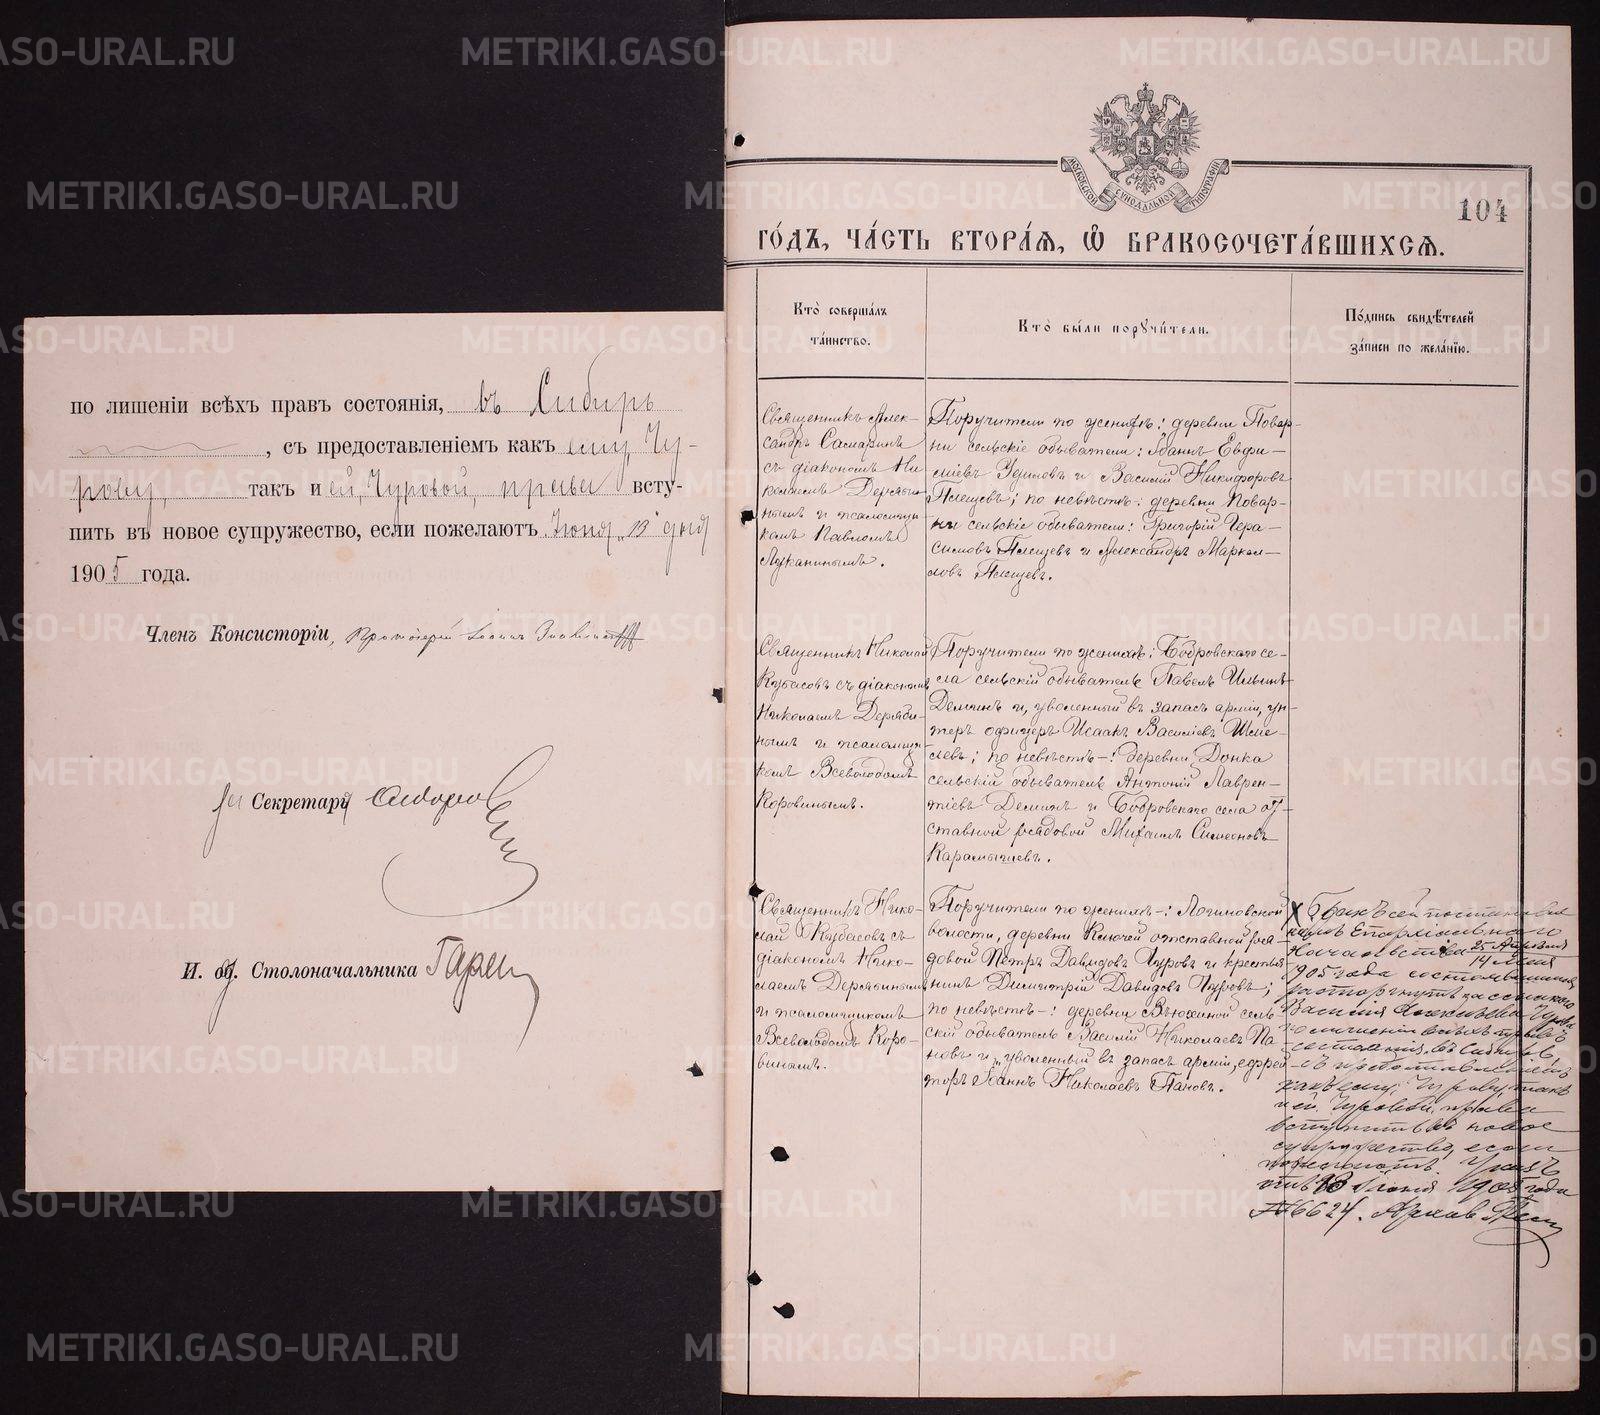 по лишеніи всѣхъ правъ состоянія, въ Сибирь
, съ предоставленіемъ какъ ему, Чу-
рову, такъ и ей, Чуровой, права всту-
пить въ новое супружество, если пожелаютъ. Іюня „13" дня
1905 года.
Членъ Консисторіи, Протоіерей Іоаннъ
Секретарь
И. об. Столоначальника
МОСКОВСКОЙ СѴНОДАЛЬНОЙ ТИПОГРАФІИ
104
ГО́ДЪ, ЧА́СТЬ ВТОРА́Ѧ, Ѽ БРАКОСОЧЕТА́ВШИХСѦ.
Кто̀ соверша́лъ
та́инство.
Кто̀ бы́ли порꙋчи́тели.
По́дпись свидѣ́телей
за́писи по жела́нїю.
Священникъ Алек-
сандръ Самаринъ
съ діакономъ Ни
колаемъ Дерябы-
нымъ и псаломщи
комъ Павломъ
Лужанинымъ.
Поручители по женихѣ: деревни Повар-
ни сельскіе обыватели: Іоаннъ Евфи-
міевъ Удиновъ и Василій Никифоровъ
Плещевъ; по невѣстѣ: деревни Повар-
ни сельскіе обыватели: Григорій Гера-
симовъ Плещевъ и Александръ Маркел-
ловъ Плещевъ.
Священникъ Николай
Кубасовъ съ діакономъ
Николаемъ Деряби-
нымъ и псаломщи-
комъ Всеволодомъ
Коровинымъ.
Поручители по женихѣ: Бобровскаго се-
ла сельскій обыватель Павелъ Ильинъ
Деминъ и, уволенный въ запасъ арміи, ун-
теръ офицеръ Исаакъ Василіевъ Шме-
левъ; по невѣстѣ: деревни Донка
сельскій обыватель Антоній Лаврен-
тіевъ Деминъ и Бобровскаго села от-
ставной рядовой Михаилъ Симеоновъ
Карамышевъ.
Священникъ Нико-
лай Кубасовъ съ
діакономъ Нико-
лаемъ Дерябинымъ
и псаломщикомъ
Всеволодомъ Коро-
винымъ.
Поручители по женихѣ: Логиновской
волости, деревни Ключей отставной ря-
довой Петръ Давидовъ Чуровъ и крестья-
нинъ Димитрій Давидовъ Чуровъ;
по невѣстѣ: деревни Вьюхиной сель-
скій обыватель Василій Николаевъ Па-
новъ и, уволенный въ запасъ арміи, ефрей
торъ Іоаннъ Николаевъ Пановъ.
Х Бракъ сей постановле-
ніемъ Епархіальнаго
Начальства 25 Апрѣля
14 Мая
1905 года состоявшимся
расторгнутъ за ссылкою
Василія Чурова
по лишеніи всѣхъ правъ
состоянія въ Сибирь,
съ предоставленіемъ
какъ ему, Чурову, такъ
и ей, Чуровой, права
вступить въ новое
супружество, если
пожелаютъ. Указъ
отъ 13 Іюня 1905 года
№ 6624.
METRIKI.GASO-URAL.RU